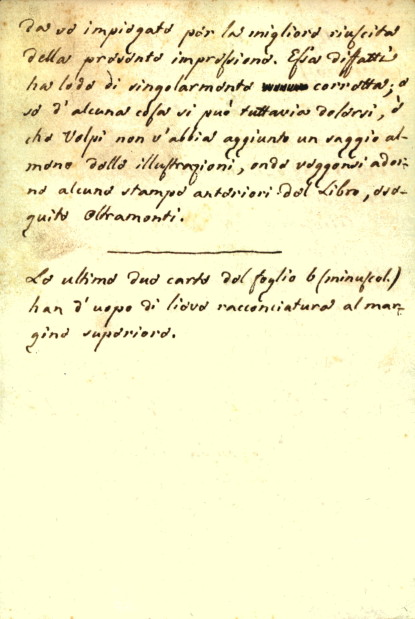 da se impiegate per la migliore riuscita
della presente impressione. Essa diffatti
ha lode di singolarmente corretta; e
se d'alcuna cosa si può tuttavia dolersi, è
che Volpi non v'abbia aggiunto un saggio al-
meno delle illustrazioni, onde veggonsi ador-
ne alcune stampe anteriori del Libro, ese-
guite oltramonti.
Le ultime due carte del foglio b (minuscol.)
han d'uopo di lieve racconciatura al mar-
gine superiore.